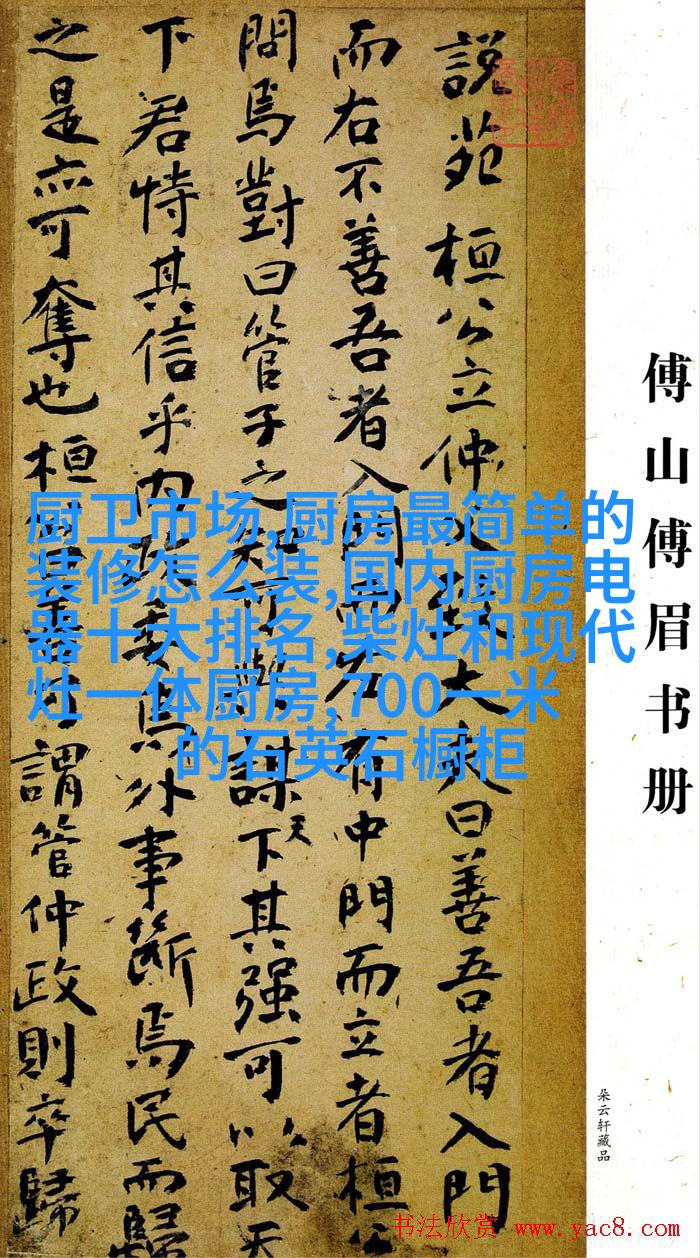 説苑 桓公立仲父大夫曰善吾者入門
而右不善吾者入門而左有中門而立者桓公
問焉對曰管子之知可與謀天下其强可以取天
下君恃其信乎内政委焉外事斷焉民而歸
之是亦可奪也桓謂管仲政則卒歸
厨卫市场,厨房最简单的
装修怎么装,国内厨房电
器十大排名,柴灶和现代
灶一体厨房,700一米
的石英石橱柜
傅山傅眉书册
朵云轩藏品
书法欣赏 www.yac8.com